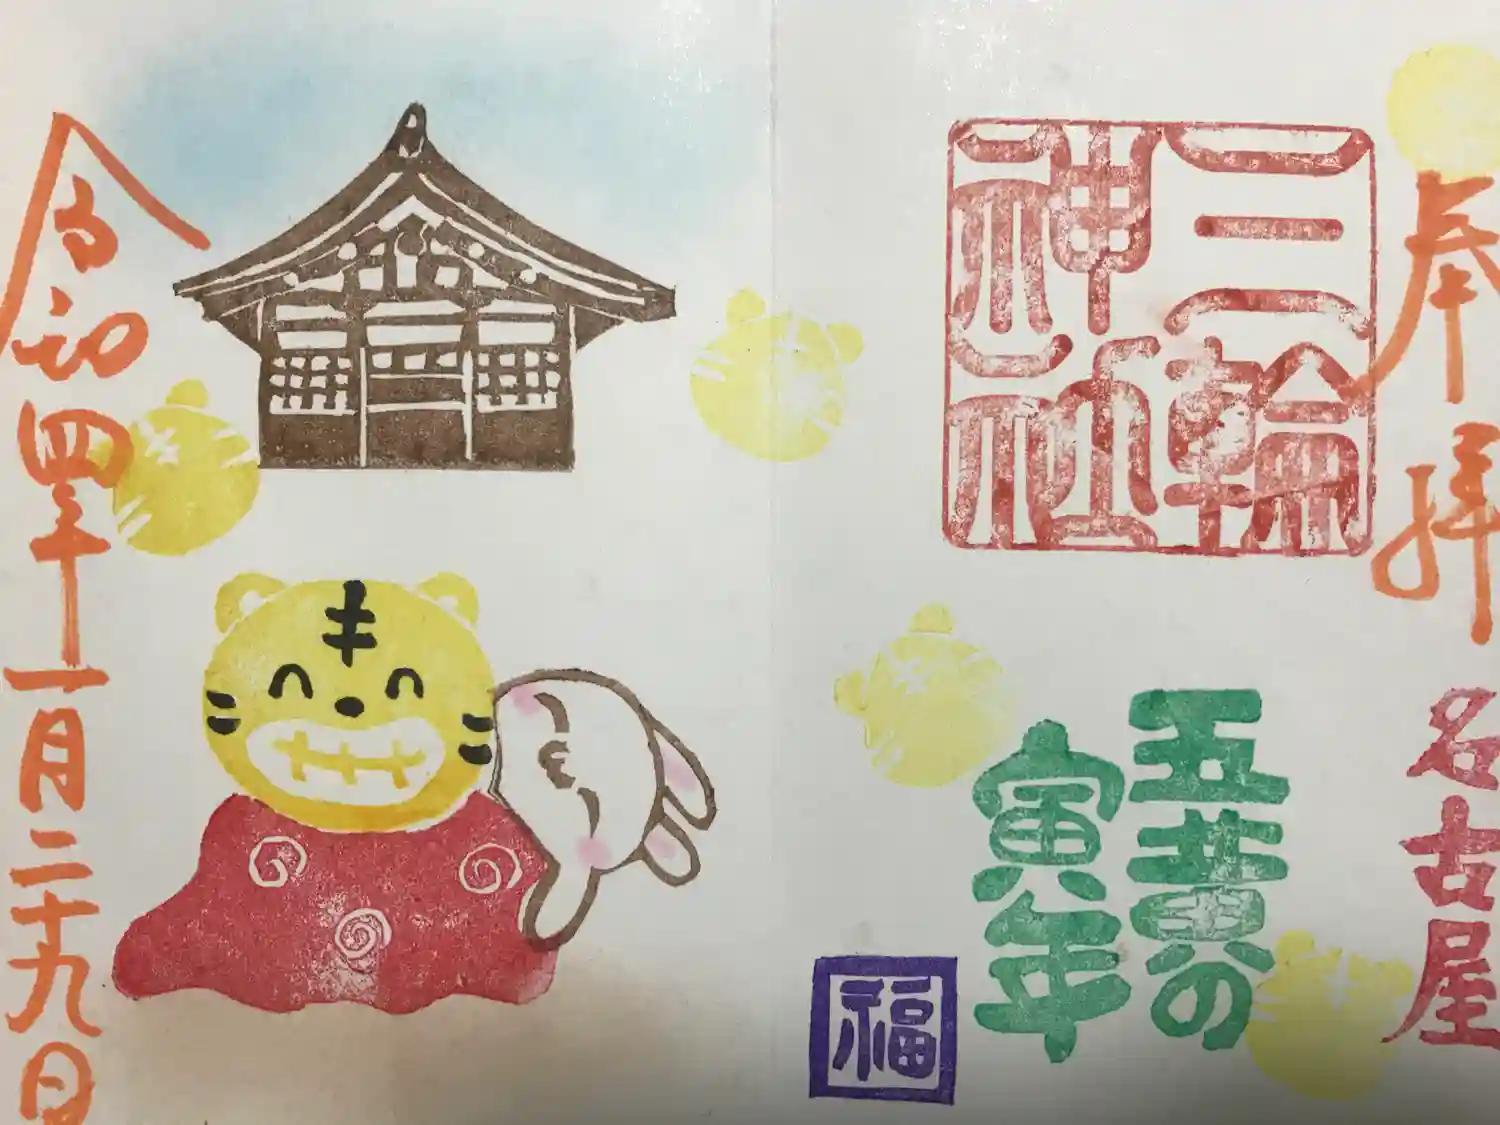 奉拝
名古屋
三輪
神社
五黄の
寅年
福
令和四年一月二十九日